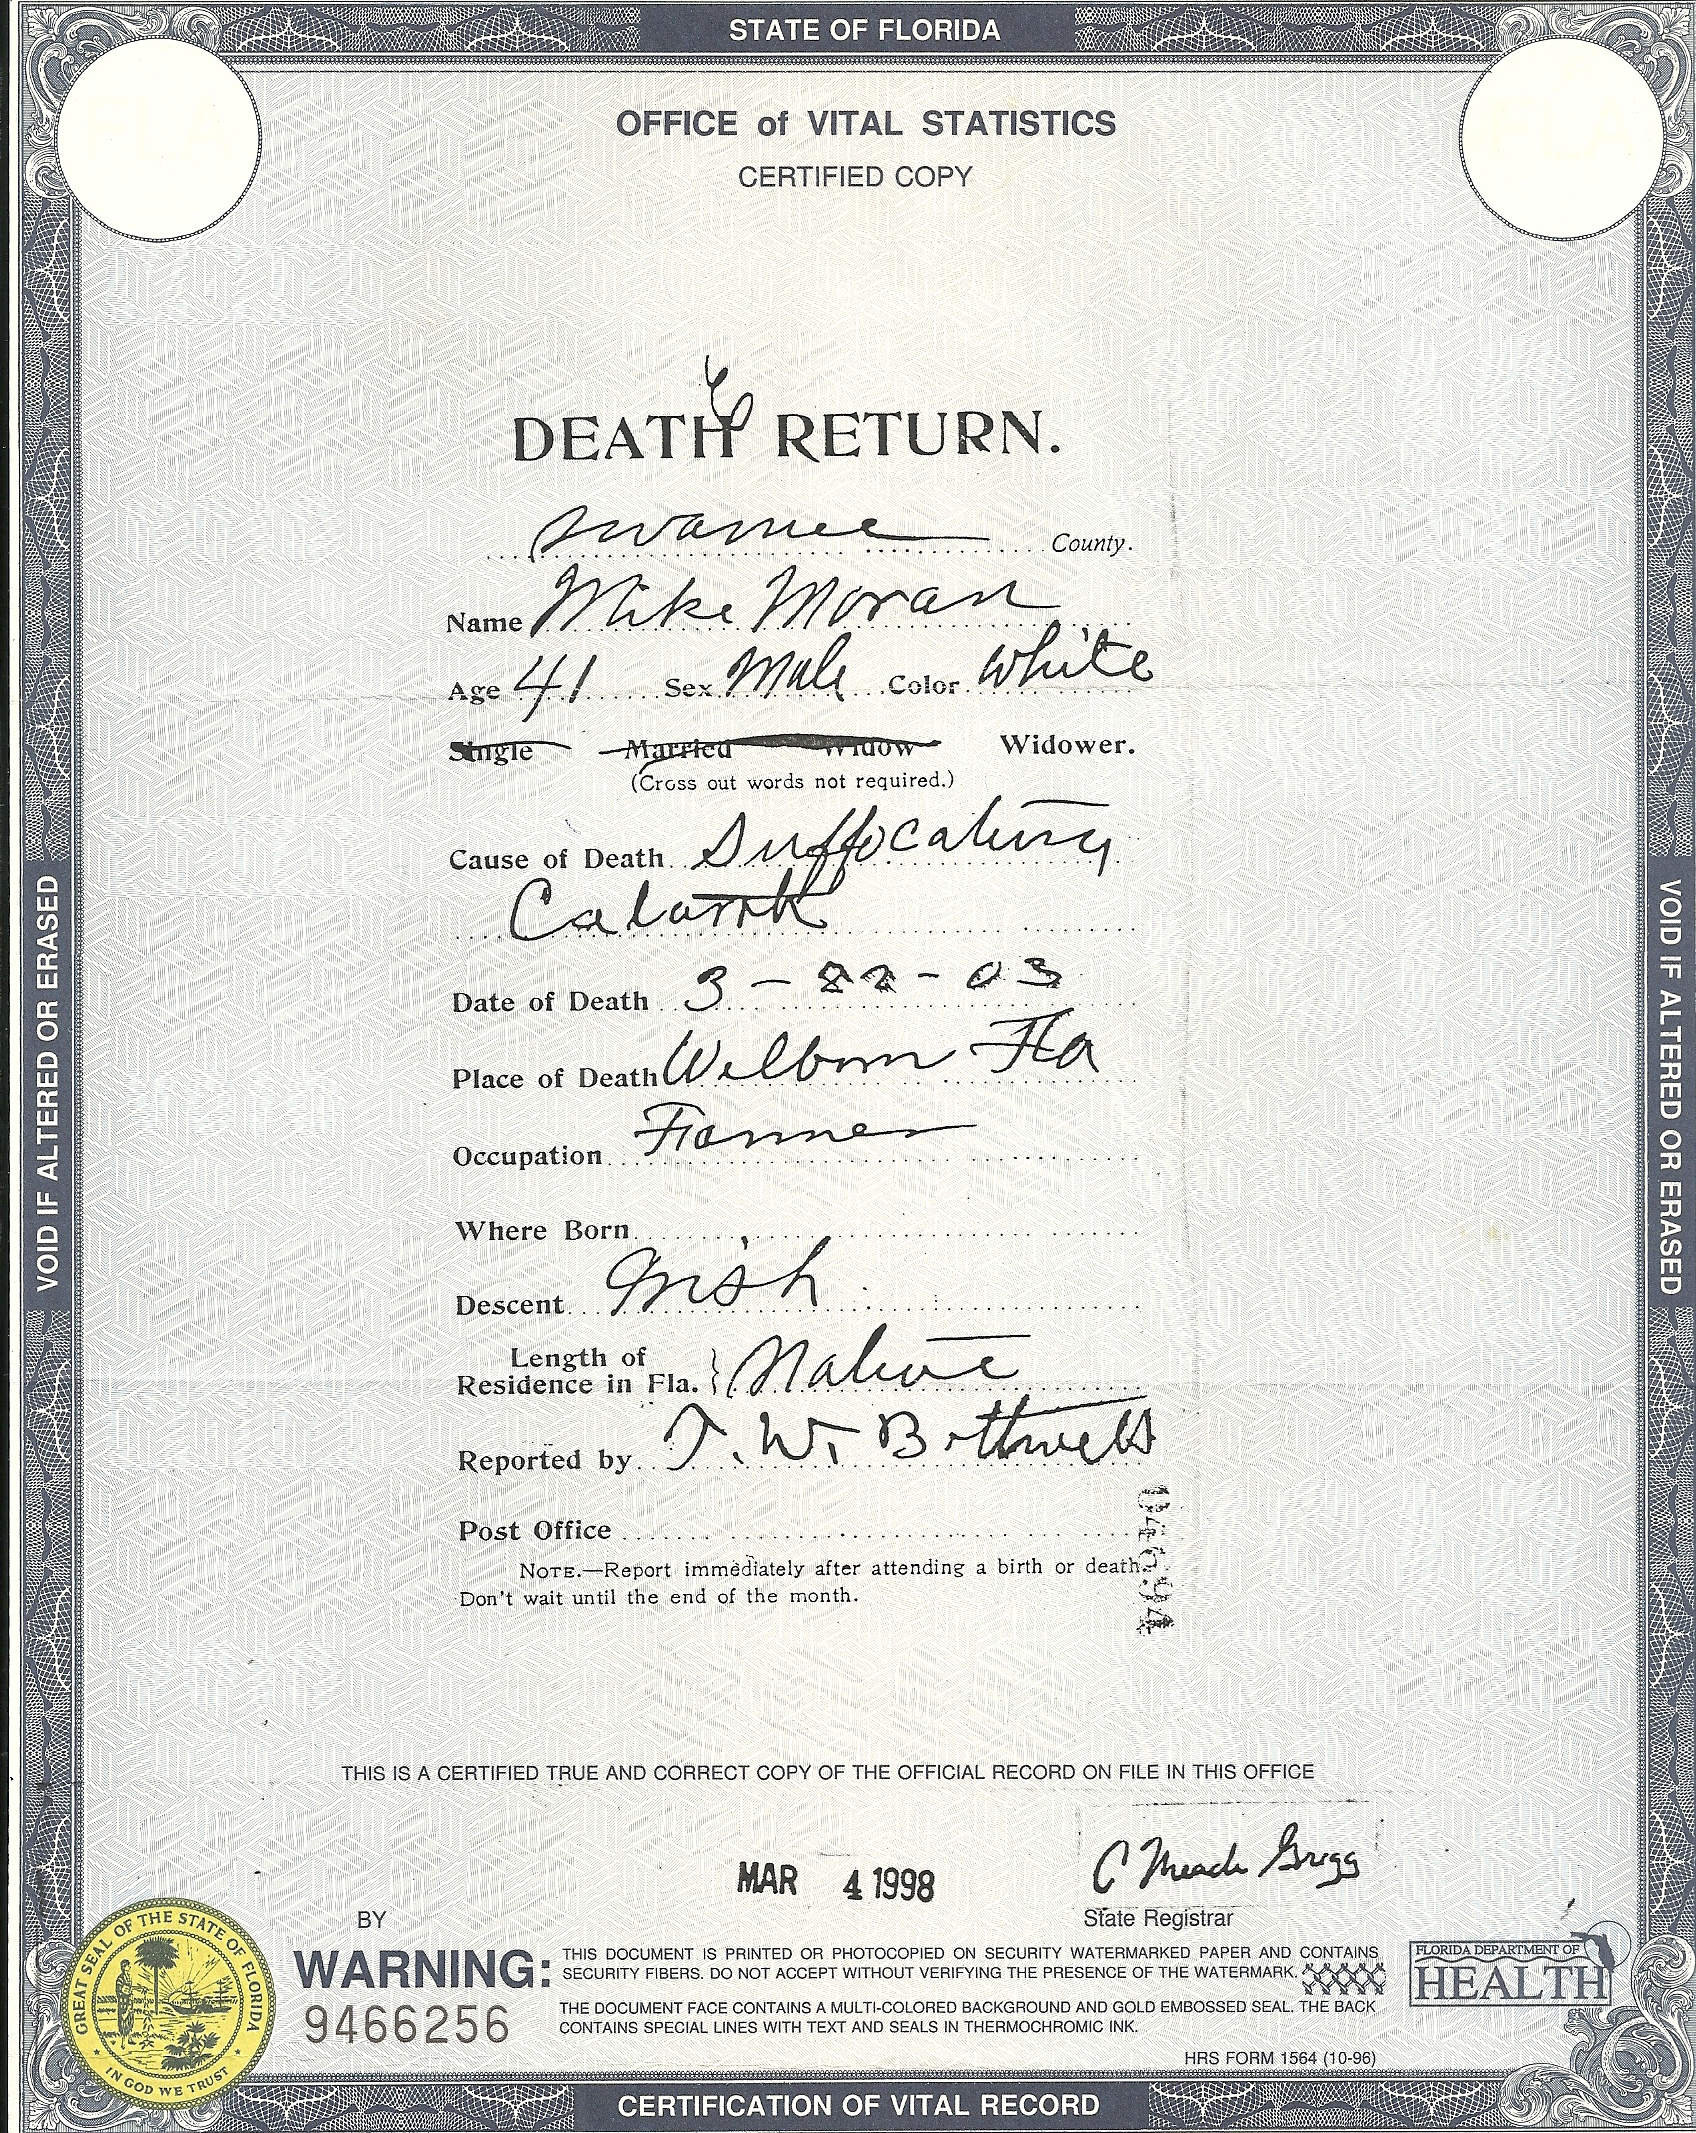 STATE OF FLORIDA
OFFICE of VITAL STATISTICS
CERTIFIED COPY
DEATH RETURN.
Suwannee County.
Name Mike Moran
Age 41 Sex Male Color White
Single Married Widow Widower.
(Cross out words not required.)
Cause of Death Suffocating
Catarrh
Date of Death 3 - 22 - 03
Place of Death Welborn Fla
Occupation Farmer
Where Born
Descent Irish
Length of
Residence in Fla. } Native
Reported by T. W. Bothwell
Post Office
NOTE.—Report immediately after attending a birth or death.
Don't wait until the end of the month.
046694
VOID IF ALTERED OR ERASED
VOID IF ALTERED OR ERASED
THIS IS A CERTIFIED TRUE AND CORRECT COPY OF THE OFFICIAL RECORD ON FILE IN THIS OFFICE
MAR 4 1998
C Meade Grigg
BY
State Registrar
GREAT SEAL OF THE STATE OF FLORIDA
IN GOD WE TRUST
WARNING:
9466256
THIS DOCUMENT IS PRINTED OR PHOTOCOPIED ON SECURITY WATERMARKED PAPER AND CONTAINS
SECURITY FIBERS. DO NOT ACCEPT WITHOUT VERIFYING THE PRESENCE OF THE WATERMARK.
THE DOCUMENT FACE CONTAINS A MULTI-COLORED BACKGROUND AND GOLD EMBOSSED SEAL. THE BACK
CONTAINS SPECIAL LINES WITH TEXT AND SEALS IN THERMOCHROMIC INK.
FLORIDA DEPARTMENT OF
HEALTH
HRS FORM 1564 (10-96)
CERTIFICATION OF VITAL RECORD